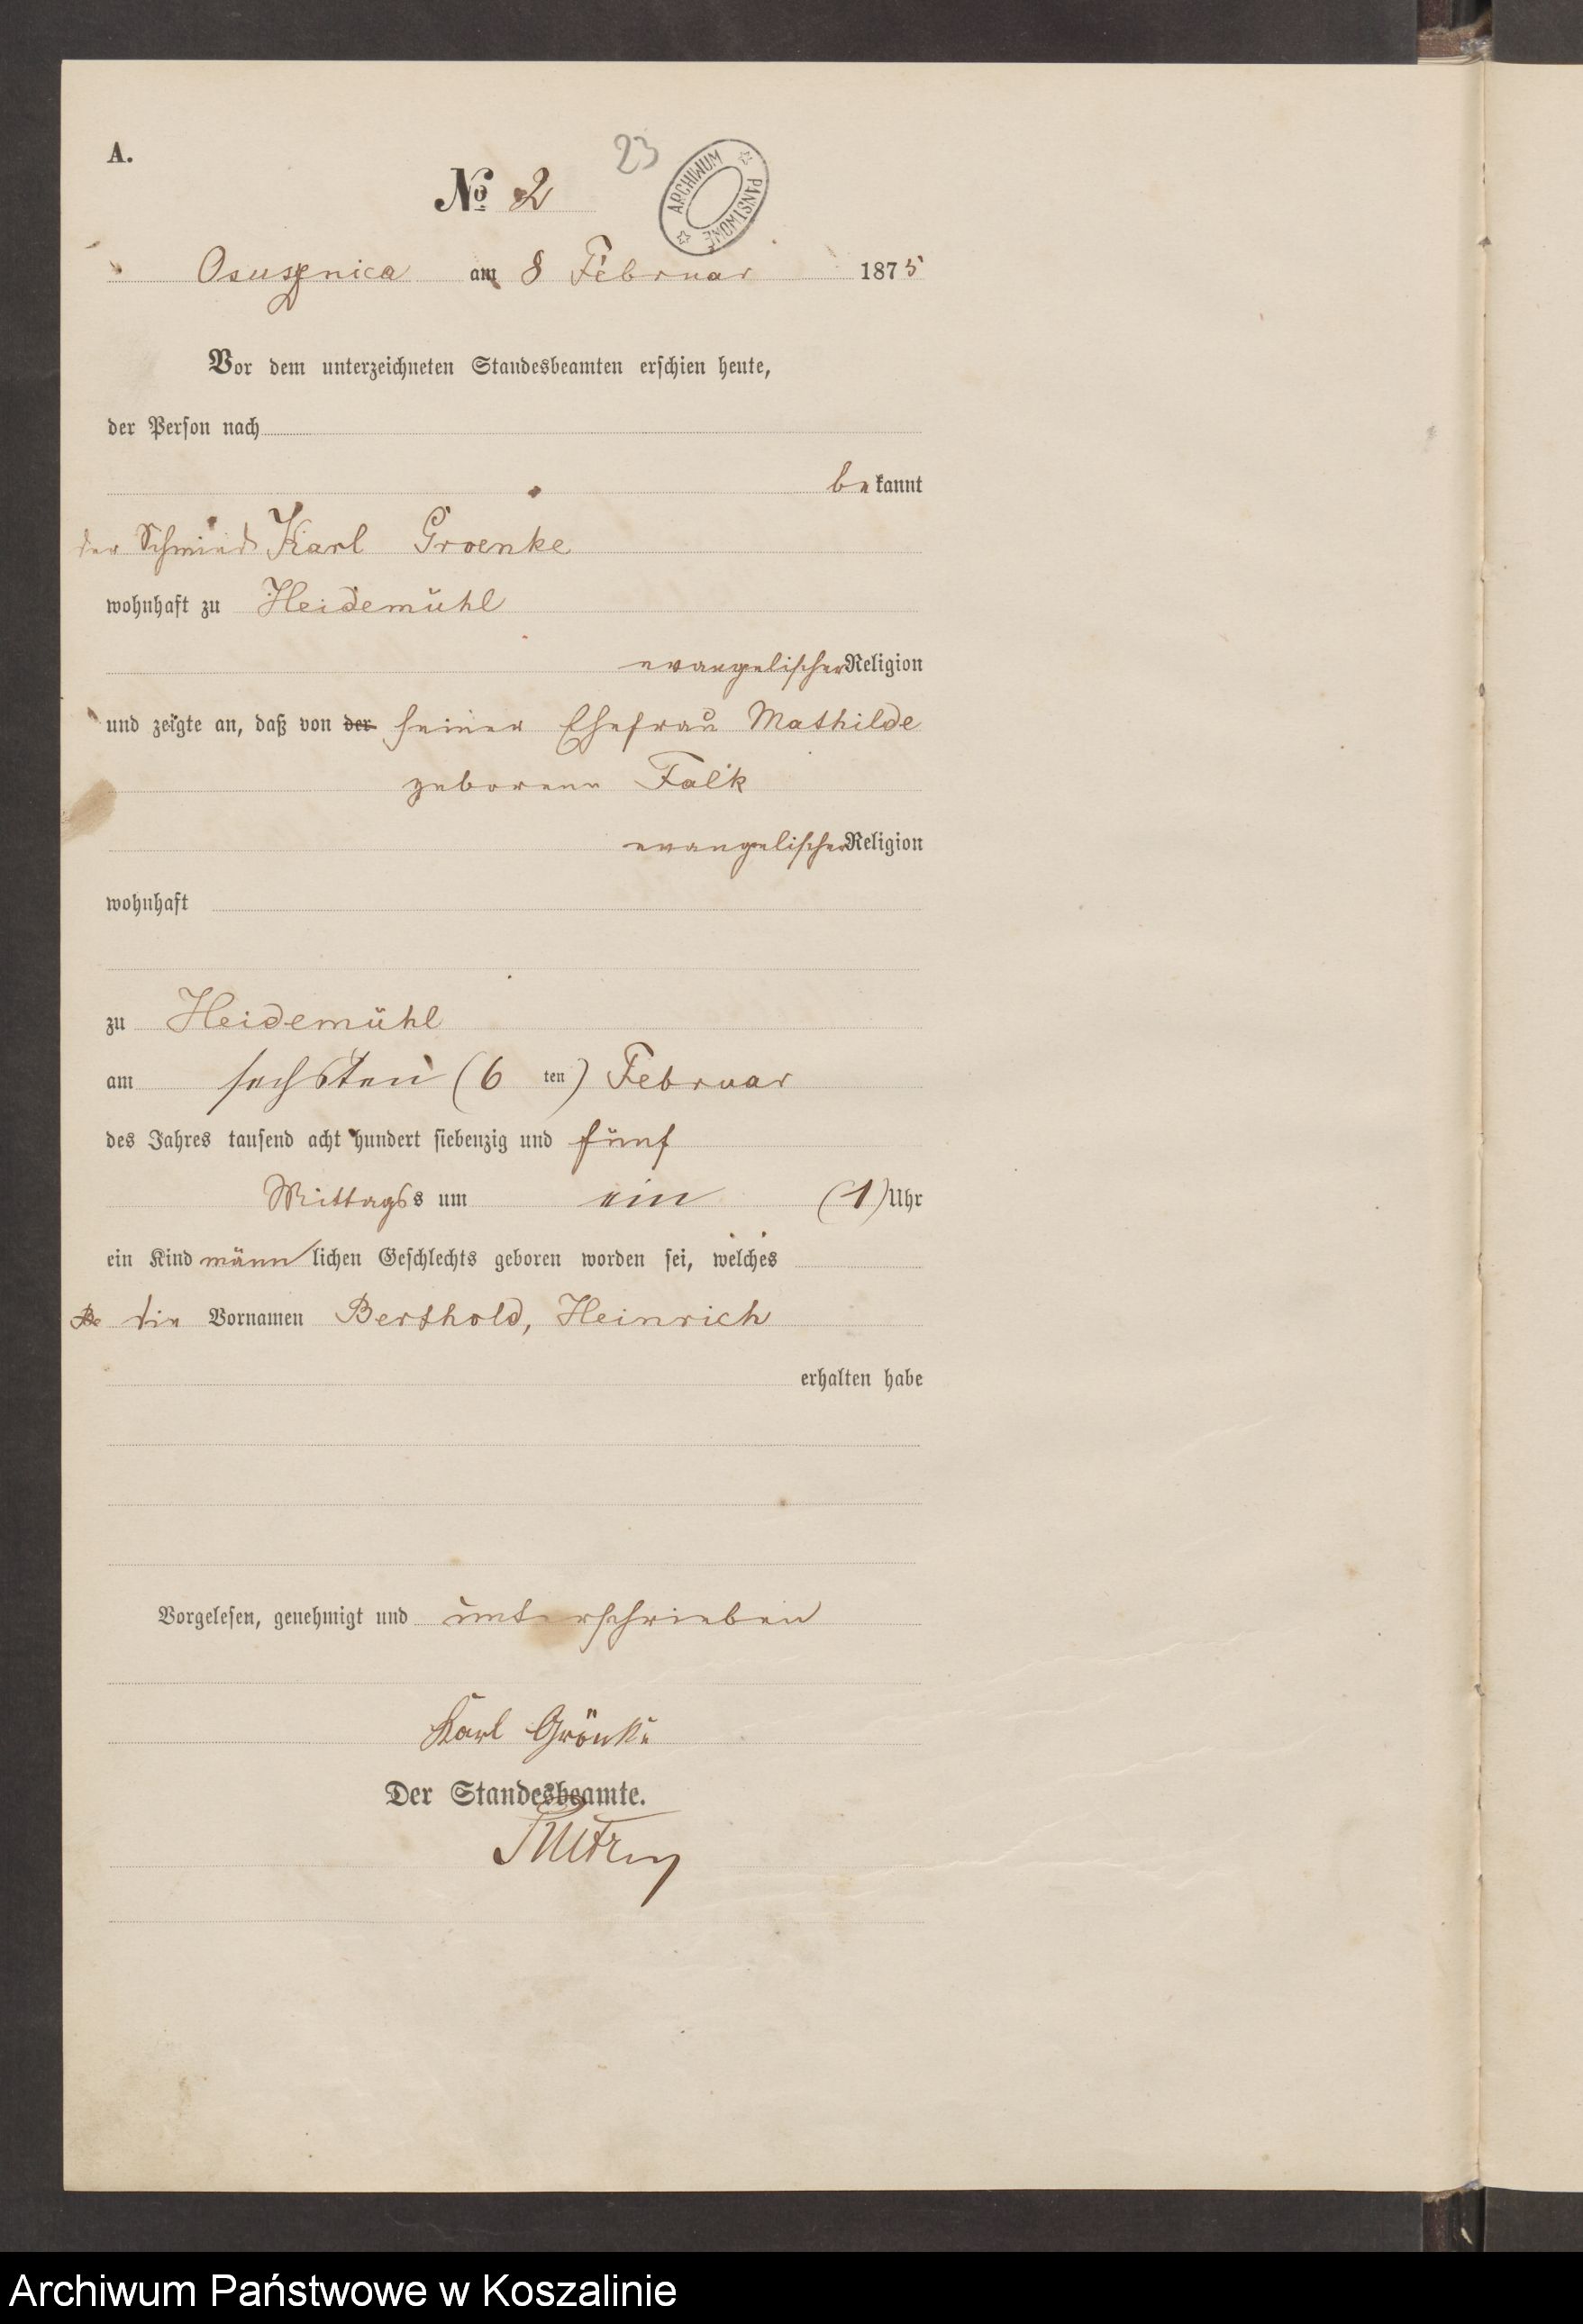 A.
23
ARCHIWUM PAŃSTWOWE
No 2
Osusznica am 8 Februar 1875
Vor dem unterzeichneten Standesbeamten erschien heute,
der Person nach
bekannt
der Schmied Karl Groenke
wohnhaft zu Heidemühl
evangelischer Religion
und zeigte an, daß von der seiner Ehefrau Mathilde
geborene Falk
evangelischer Religion
wohnhaft
zu Heidemühl
am sechsten (6 ten) Februar
des Jahres tausend acht hundert siebenzig und fünf
Mittags s um ein (1) Uhr
ein Kind männlichen Geschlechts geboren worden sei, welches
Be die Vornamen Berthold, Heinrich
erhalten habe
Vorgelesen, genehmigt und unterschrieben
Karl Grönke
Der Standesbeamte.
Archiwum Państwowe w Koszalinie